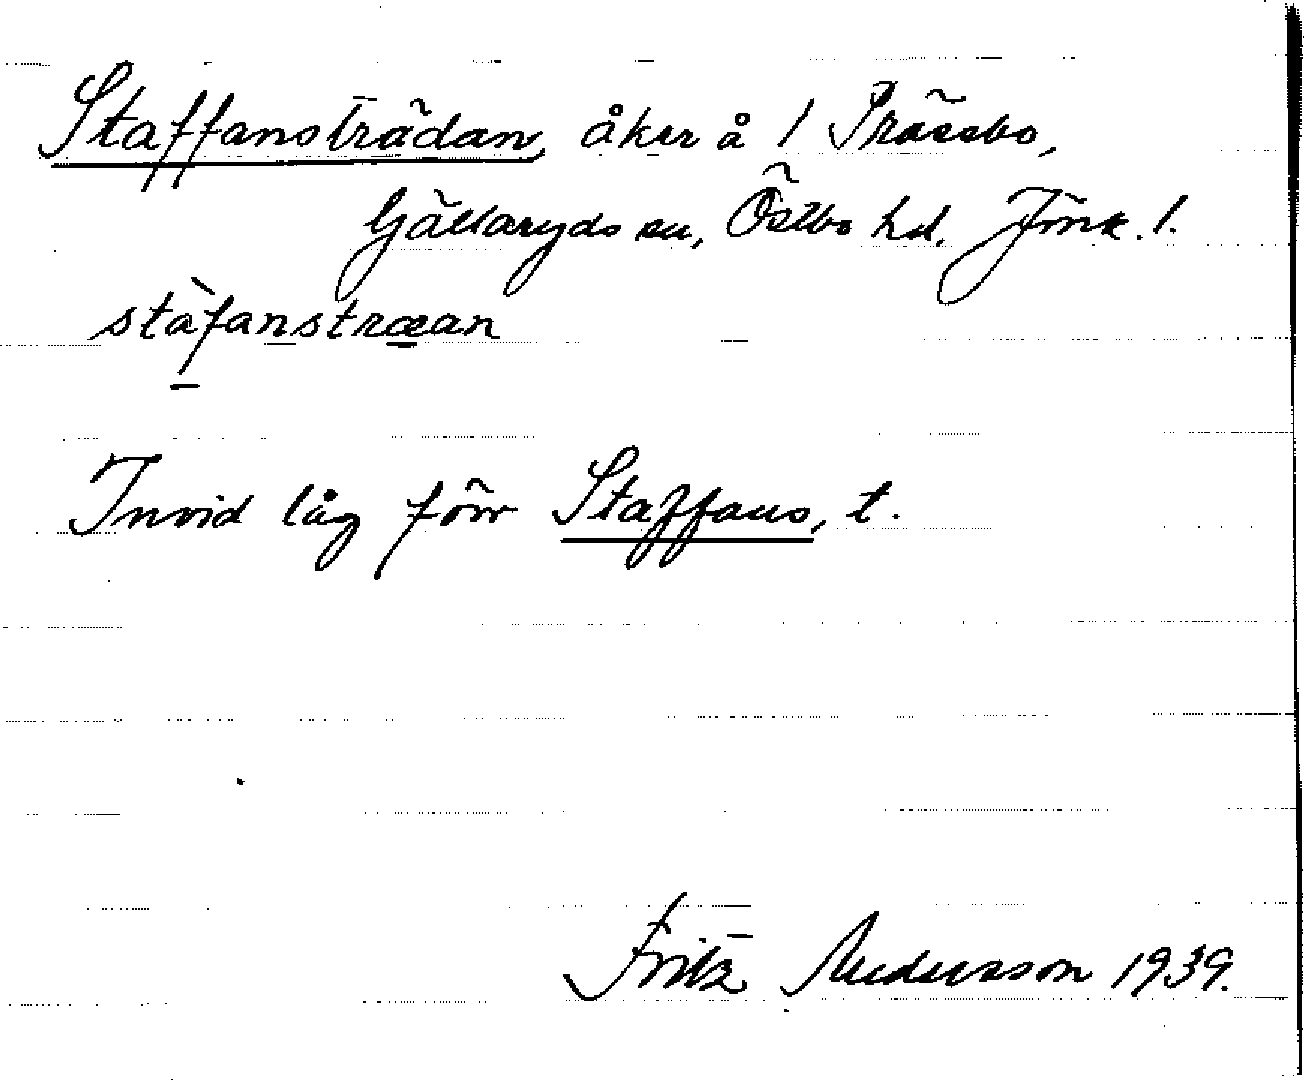 Staffansträdan, åker å 1 Prässbo,
Gällaryds sn, Östbo hd. Jönk. l.
stàfanstræan
Invid låg förr Staffans, t.
Fritz Andersson 1939.